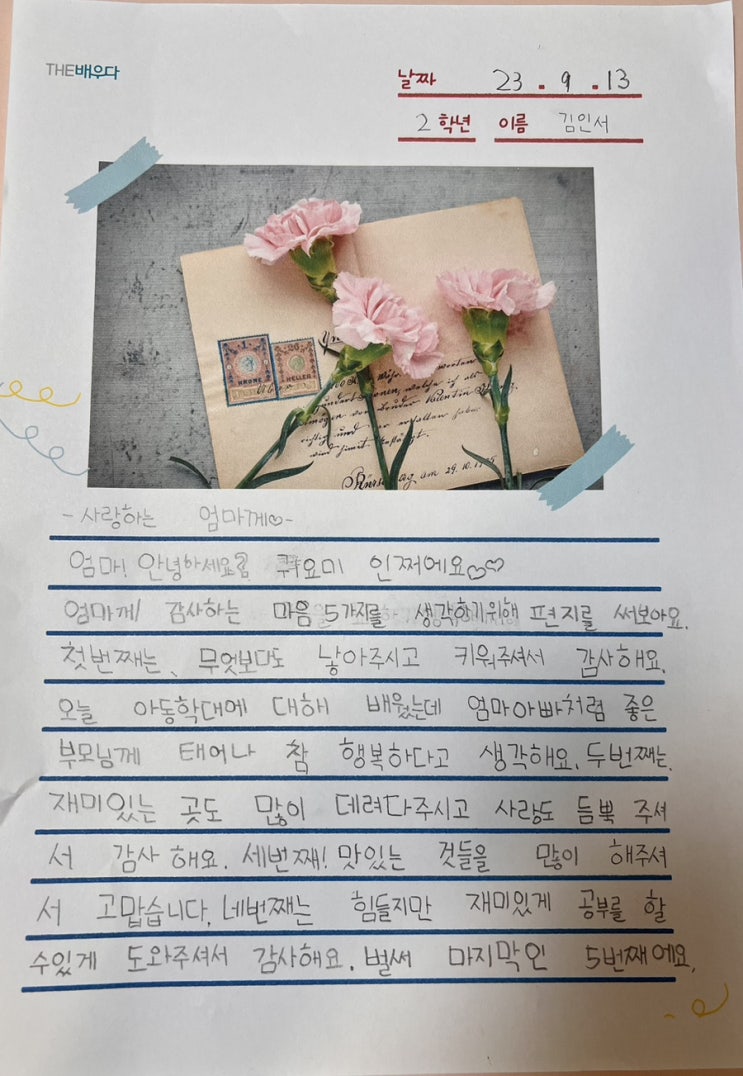 THE배우다
날짜 23 . 9 . 13
2 학년 이름 김인서
1
KRONE
20
HELLER
am 29. 10.
- 사랑하는 엄마께♡-
엄마! 안녕하세요? 뀨요미 인쩌에요♡♡
엄마께 감사하는 마음 5가지를 생각하기위해 편지를 써보아요.
첫번째는, 무엇보다도 낳아주시고 키워주셔서 감사해요.
오늘 아동학대에 대해 배웠는데 엄마아빠처럼 좋은
부모님께 태어나 참 행복하다고 생각해요. 두번째는,
재미있는 곳도 많이 데려다주시고 사랑도 듬뿍 주셔
서 감사 해요. 세번째! 맛있는 것들을 많이 해주셔
서 고맙습니다. 네번째는 힘들지만 재미있게 공부를 할
수있게 도와주셔서 감사해요. 벌써 마지막인 5번째에요.